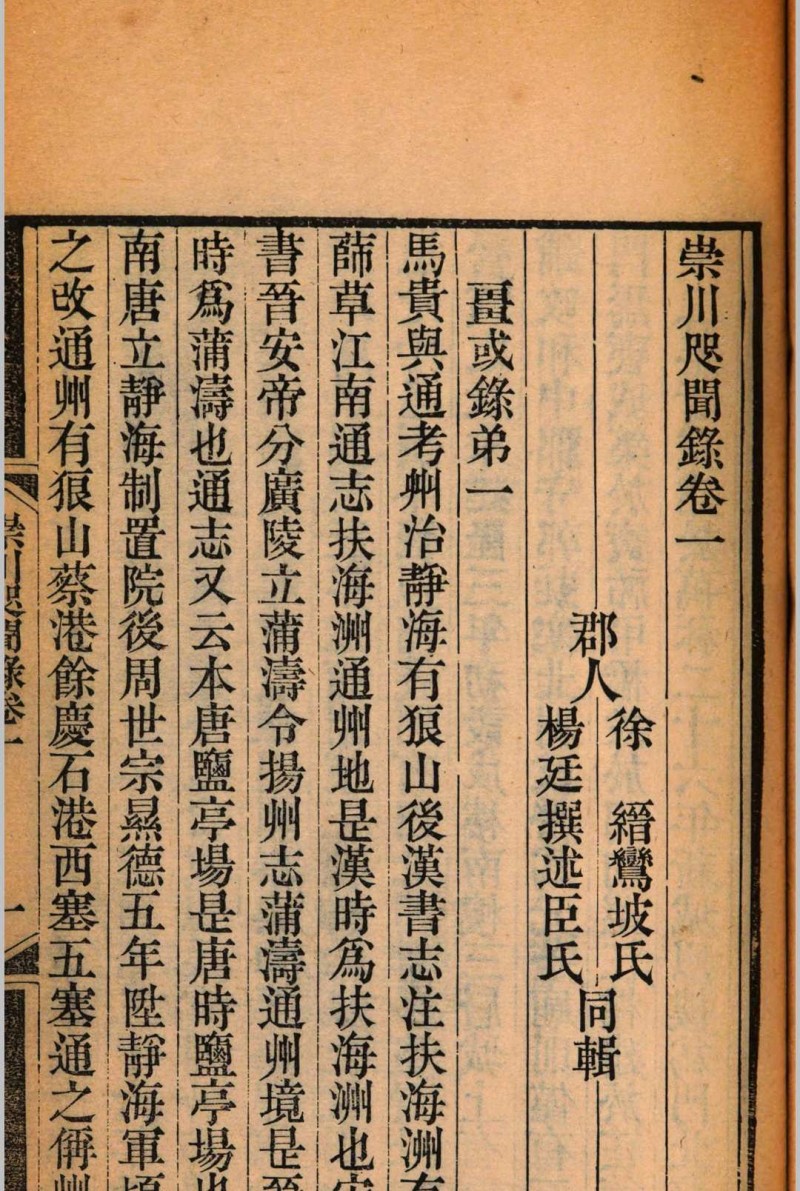 崇川咫聞錄卷一
郡人
徐 縉鸞坡氏
楊廷撰述臣氏
同輯
畺或錄弟一
馬貴與通考州治靜海有狼山後漢書志注扶海洲有
蒒草江南通志扶海洲通州地是漢時爲扶海洲也宋
書晉安帝分廣陵立蒲濤令揚州志蒲濤通州境是晉
時爲蒲濤也通志又云本唐鹽亭場是唐時鹽亭場也
南唐立靜海制置院後周世宗㬎德五年陞靜海軍頃
之改通州有狼山蔡港餘慶石港西塞五塞通之偁州
崇川咫聞錄卷一
一